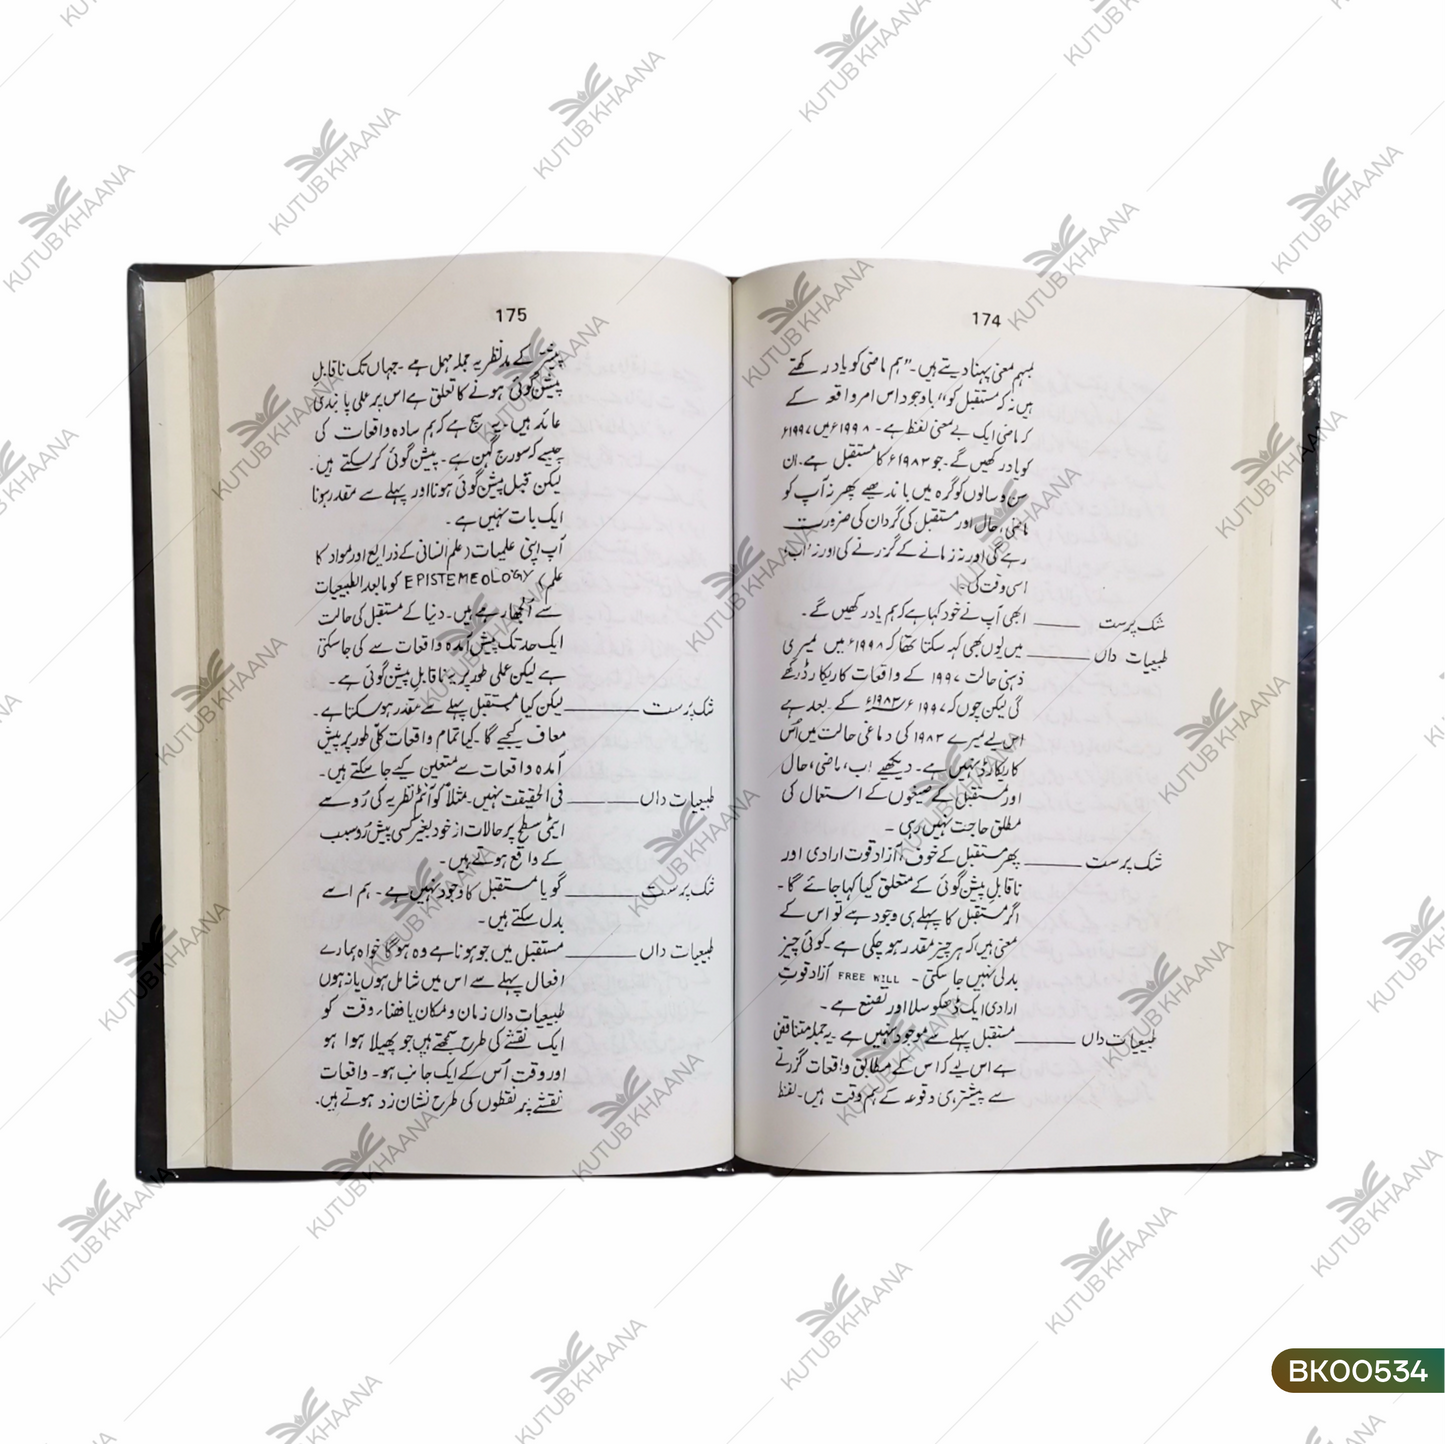 174
مبہم معنی پہنا دیتے ہیں۔ "ہم ماضی کو یاد رکھتے
ہیں نہ کہ مستقبل کو" باوجود اس امر واقعہ کے
کہ ماضی ایک بے معنی لفظ ہے۔ ۱۹۹۸ء میں ۱۹۹۷ء
کو یاد رکھیں گے۔ جو ۱۹۸۳ء کا مستقبل ہے۔ ان
سن و سالوں کو گرہ میں باندھیے پھر نہ آپ کو
ماضی، حال اور مستقبل کی گردان کی ضرورت
رہے گی اور نہ زمانے کے گزرنے کی اور نہ 'اب'
اسی وقت کی۔
شک پرست ــــــ ابھی آپ نے خود کہا ہے کہ ہم یاد رکھیں گے۔
طبیعیات داں ــــــ میں یوں بھی کہہ سکتا تھا کہ ۱۹۹۸ء میں میری
ذہنی حالت ۱۹۹۷ کے واقعات کا ریکارڈ رکھے
گی لیکن چوں کہ ۱۹۹۷ء ۱۹۸۳ء کے بعد ہے
اس لیے میرے ۱۹۸۳ کی دماغی حالت میں اُس
کا ریکارڈ نہیں ہے۔ دیکھیے اب، ماضی، حال
اور مستقبل کے صیغوں کے استعمال کی
مطلق حاجت نہیں رہی۔
شک پرست ــــــ پھر مستقبل کے خوف، آزاد قوت ارادی اور
ناقابلِ پیشن گوئی کے متعلق کیا کہا جائے گا۔
اگر مستقبل کا پہلے ہی وجود ہے تو اس کے
معنی ہیں کہ ہر چیز مقدر ہو چکی ہے۔ کوئی چیز
بدلی نہیں جا سکتی۔ FREE WILL آزاد قوتِ
ارادی ایک ڈھکوسلا اور تصنع ہے۔
طبیعیات داں ــــــ مستقبل پہلے سے موجود نہیں ہے۔ یہ جملہ متناقض
ہے اس لیے کہ اس کے مطابق واقعات گزرنے
سے پیشتر ہی وقوعہ کے ہم وقت ہیں۔ لفظ
175
پیشتر کے مدنظر یہ جملہ مہمل ہے۔ جہاں تک ناقابلِ
پیشن گوئی ہونے کا تعلق ہے اس پر عملی پابندی
عائد ہیں۔ یہ سچ ہے کہ ہم سادہ واقعات کی
جیسے کہ سورج گہن ہے۔ پیشن گوئی کر سکتے ہیں۔
لیکن قبل پیشن گوئی ہونا اور پہلے سے مقدر ہونا
ایک بات نہیں ہے۔
آپ اپنی علمیات (علم انسانی کے ذرایع اور مواد کا
علم) EPISTEMEOLOGY کو مابعد الطبیعیات
سے اُلجھا رہے ہیں۔ دنیا کے مستقبل کی حالت
ایک حد تک پیش آمدہ واقعات سے کی جا سکتی
ہے لیکن عملی طور پر یہ ناقابلِ پیشن گوئی ہے۔
شک پرست ــــــ لیکن کیا مستقبل پہلے سے مقدر ہو سکتا ہے۔
معاف کیجیے گا۔ کیا تمام واقعات کلی طور پر پیش
آمدہ واقعات سے متعین کیے جا سکتے ہیں۔
طبیعیات داں ــــــ فی الحقیقت نہیں۔ مثلاً کوانٹم نظریہ کی رُو سے
ایٹمی سطح پر حالات از خود بغیر کسی پیش رَو سبب
کے واقع ہوتے ہیں۔
شک پرست ــــــ گویا مستقبل کا وجود نہیں ہے۔ ہم اسے
بدل سکتے ہیں۔
طبیعیات داں ــــــ مستقبل میں جو ہونا ہے وہ ہو گا خواہ ہمارے
افعال پہلے سے اس میں شامل ہوں یا نہ ہوں
طبیعیات داں زمان و مکان یا فضا، وقت کو
ایک نقشے کی طرح سمجھتے ہیں جو پھیلا ہوا ہو
اور وقت اُس کے ایک جانب ہو۔ واقعات
نقشے پر نقطوں کی طرح نشان زد ہوتے ہیں۔
KUTUB KHAANA
BK00534